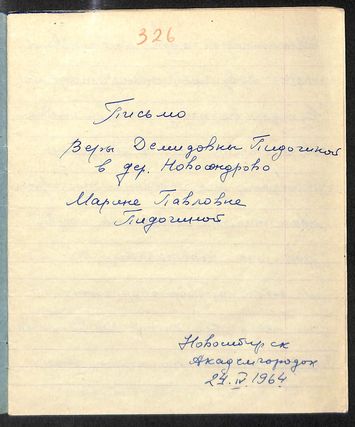 326
Письмо
Веры Демидовны Пидогиной
в дер. Новосондрово
Марине Павловне
Пидогиной
Новосибирск
Академгородок
24.IV.1964